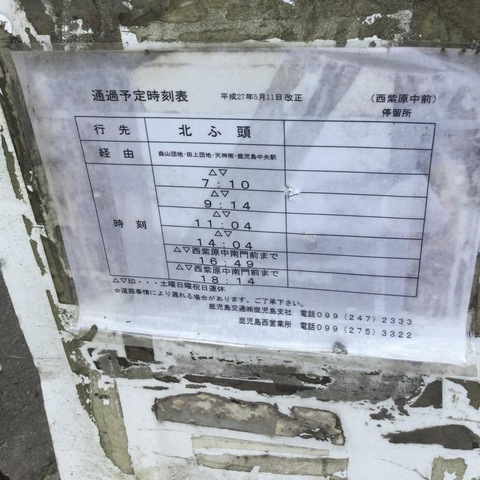 通過予定時刻表 平成27年5月11日改正 (西紫原中前)
停留所
行先 北ふ頭
経由 森山団地・田上団地・天神南・鹿児島中央駅
時刻
△▽
7:10
△▽
9:14
△▽
11:04
△▽
14:04
△▽西紫原中南門前まで
16:49
△▽西紫原中南門前まで
18:14
△▽印・・・土曜日曜祝日運休
☆道路事情により遅れる場合があります。ご了承下さい。
鹿児島交通㈱鹿児島支社 電話099(247)2333
鹿児島西営業所 電話099(275)3322